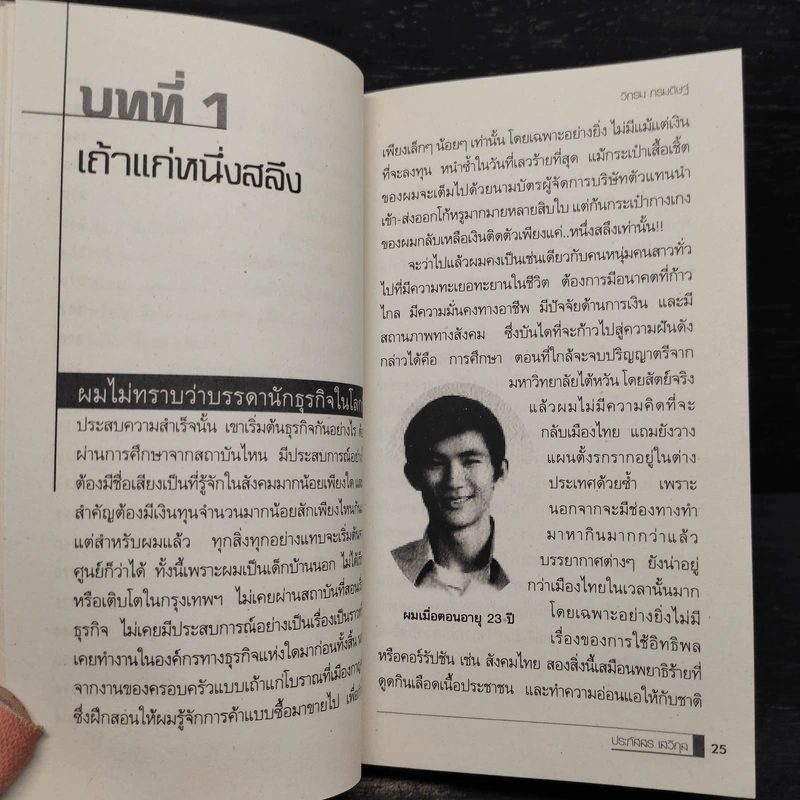 บทที่ 1
เถ้าแก่หนึ่งสลึง
ผมไม่ทราบว่าบรรดานักธุรกิจในโลก
ประสบความสำเร็จนั้น เขาเริ่มต้นธุรกิจกันอย่างไร
ผ่านการศึกษาจากสถาบันไหน มีประสบการณ์อย่าง
ต้องมีชื่อเสียงเป็นที่รู้จักในสังคมมากน้อยเพียงใด และ
สำคัญต้องมีเงินทุนจำนวนมากน้อยสักเพียงไหนกัน
แต่สำหรับผมแล้ว ทุกสิ่งทุกอย่างแทบจะเริ่มต้น
ศูนย์ก็ว่าได้ ทั้งนี้เพราะผมเป็นเด็กบ้านนอก ไม่ได้
หรือเติบโตในกรุงเทพฯ ไม่เคยผ่านสถาบันที่สอน
ธุรกิจ ไม่เคยมีประสบการณ์อย่างเป็นเรื่องเป็นราว
เคยทำงานในองค์กรทางธุรกิจแห่งใดมาก่อนทั้งสิ้น
จากงานของครอบครัวแบบเถ้าแก่โบราณที่เมือง
ซึ่งฝึกสอนให้ผมรู้จักการค้าแบบซื้อมาขายไป
วิกรม กรมดิษฐ์
เพียงเล็กๆ น้อยๆ เท่านั้น โดยเฉพาะอย่างยิ่ง ไม่มีแม้แต่เงิน
ที่จะลงทุน หนำซ้ำในวันที่เลวร้ายที่สุด แม้กระเป๋าเสื้อเชิ้ต
ของผมจะเต็มไปด้วยนามบัตรผู้จัดการบริษัทตัวแทนนำ
เข้า-ส่งออกโก้หรูมากมายหลายสิบใบ แต่ก้นกระเป๋ากางเกง
ของผมกลับเหลือเงินติดตัวเพียงแค่..หนึ่งสลึงเท่านั้น!!
จะว่าไปแล้วผมคงเป็นเช่นเดียวกับคนหนุ่มคนสาวทั่ว
ไปที่มีความทะเยอทะยานในชีวิต ต้องการมีอนาคตที่ก้าว
ไกล มีความมั่นคงทางอาชีพ มีปัจจัยด้านการเงิน และมี
สถานภาพทางสังคม ซึ่งบันไดที่จะก้าวไปสู่ความฝันดัง
กล่าวได้คือ การศึกษา ตอนที่ใกล้จะจบปริญญาตรีจาก
มหาวิทยาลัยไต้หวัน โดยสัตย์จริง
แล้วผมไม่มีความคิดที่จะ
กลับเมืองไทย แถมยังวาง
แผนตั้งรกรากอยู่ในต่าง
ประเทศด้วยซ้ำ เพราะ
นอกจากจะมีช่องทางทำ
มาหากินมากกว่าแล้ว
บรรยากาศต่างๆ ยังน่าอยู่
กว่าเมืองไทยในเวลานั้นมาก
โดยเฉพาะอย่างยิ่งไม่มี
เรื่องของการใช้อิทธิพล
ผมเมื่อตอนอายุ 23 ปี
หรือคอร์รัปชัน เช่น สังคมไทย สองสิ่งนี้เสมือนพยาธิร้ายที่
ดูดกินเลือดเนื้อประชาชน และทำความอ่อนแอให้กับชาติ
ประภัสสร เสวิกุล 25